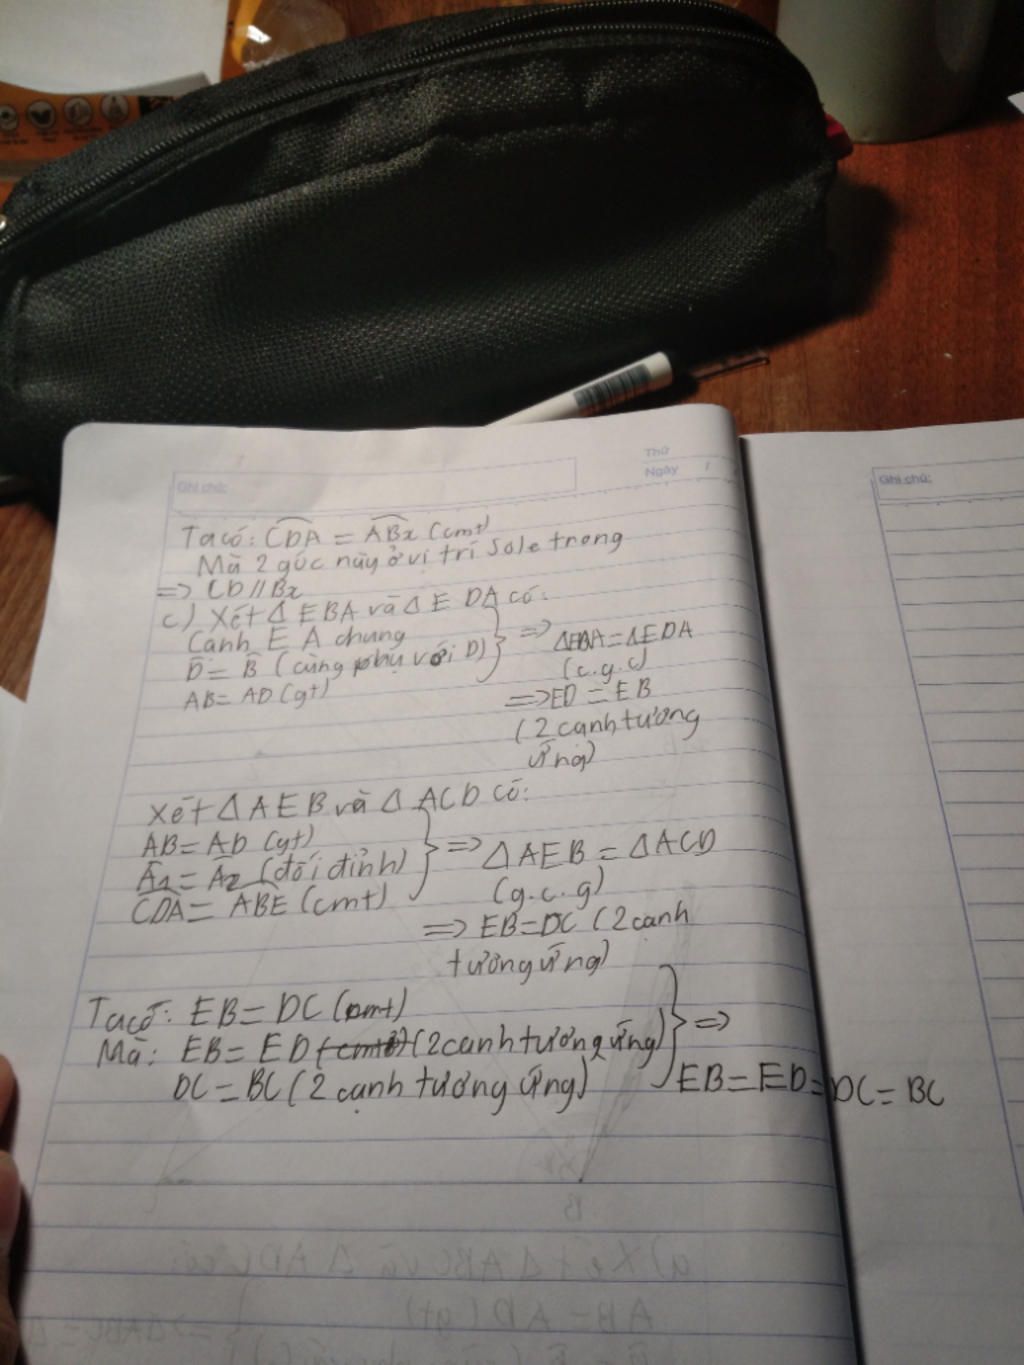 Thứ
Ngày /
Ghi chú:
Ghi chú:
Ta có: CDA = ABx (cmt)
Mà 2 góc này ở vị trí sole trong
=> CD // Bx
c) Xét Δ EBA và Δ EDA có:
Cạnh EA chung
D = B (cùng phụ với D)
AB = AD (gt)
=> ΔEBA = ΔEDA
(c.g.c)
=> ED = EB
(2 cạnh tương
ứng)
Xét Δ AEB và Δ ACD có:
AB = AD (gt)
A1 = A2 (đối đỉnh)
CDA = ABE (cmt)
=> Δ AEB = Δ ACD
(g.c.g)
=> EB = DC (2 cạnh
tương ứng)
Ta có: EB = DC (cmt)
Mà: EB = ED (2 cạnh tương ứng)
DC = BC (2 cạnh tương ứng)
=>
EB = ED = DC = BC
B
a) Xét Δ ABC và Δ ADC có:
AB = AD (gt)
=> ΔABC = Δ